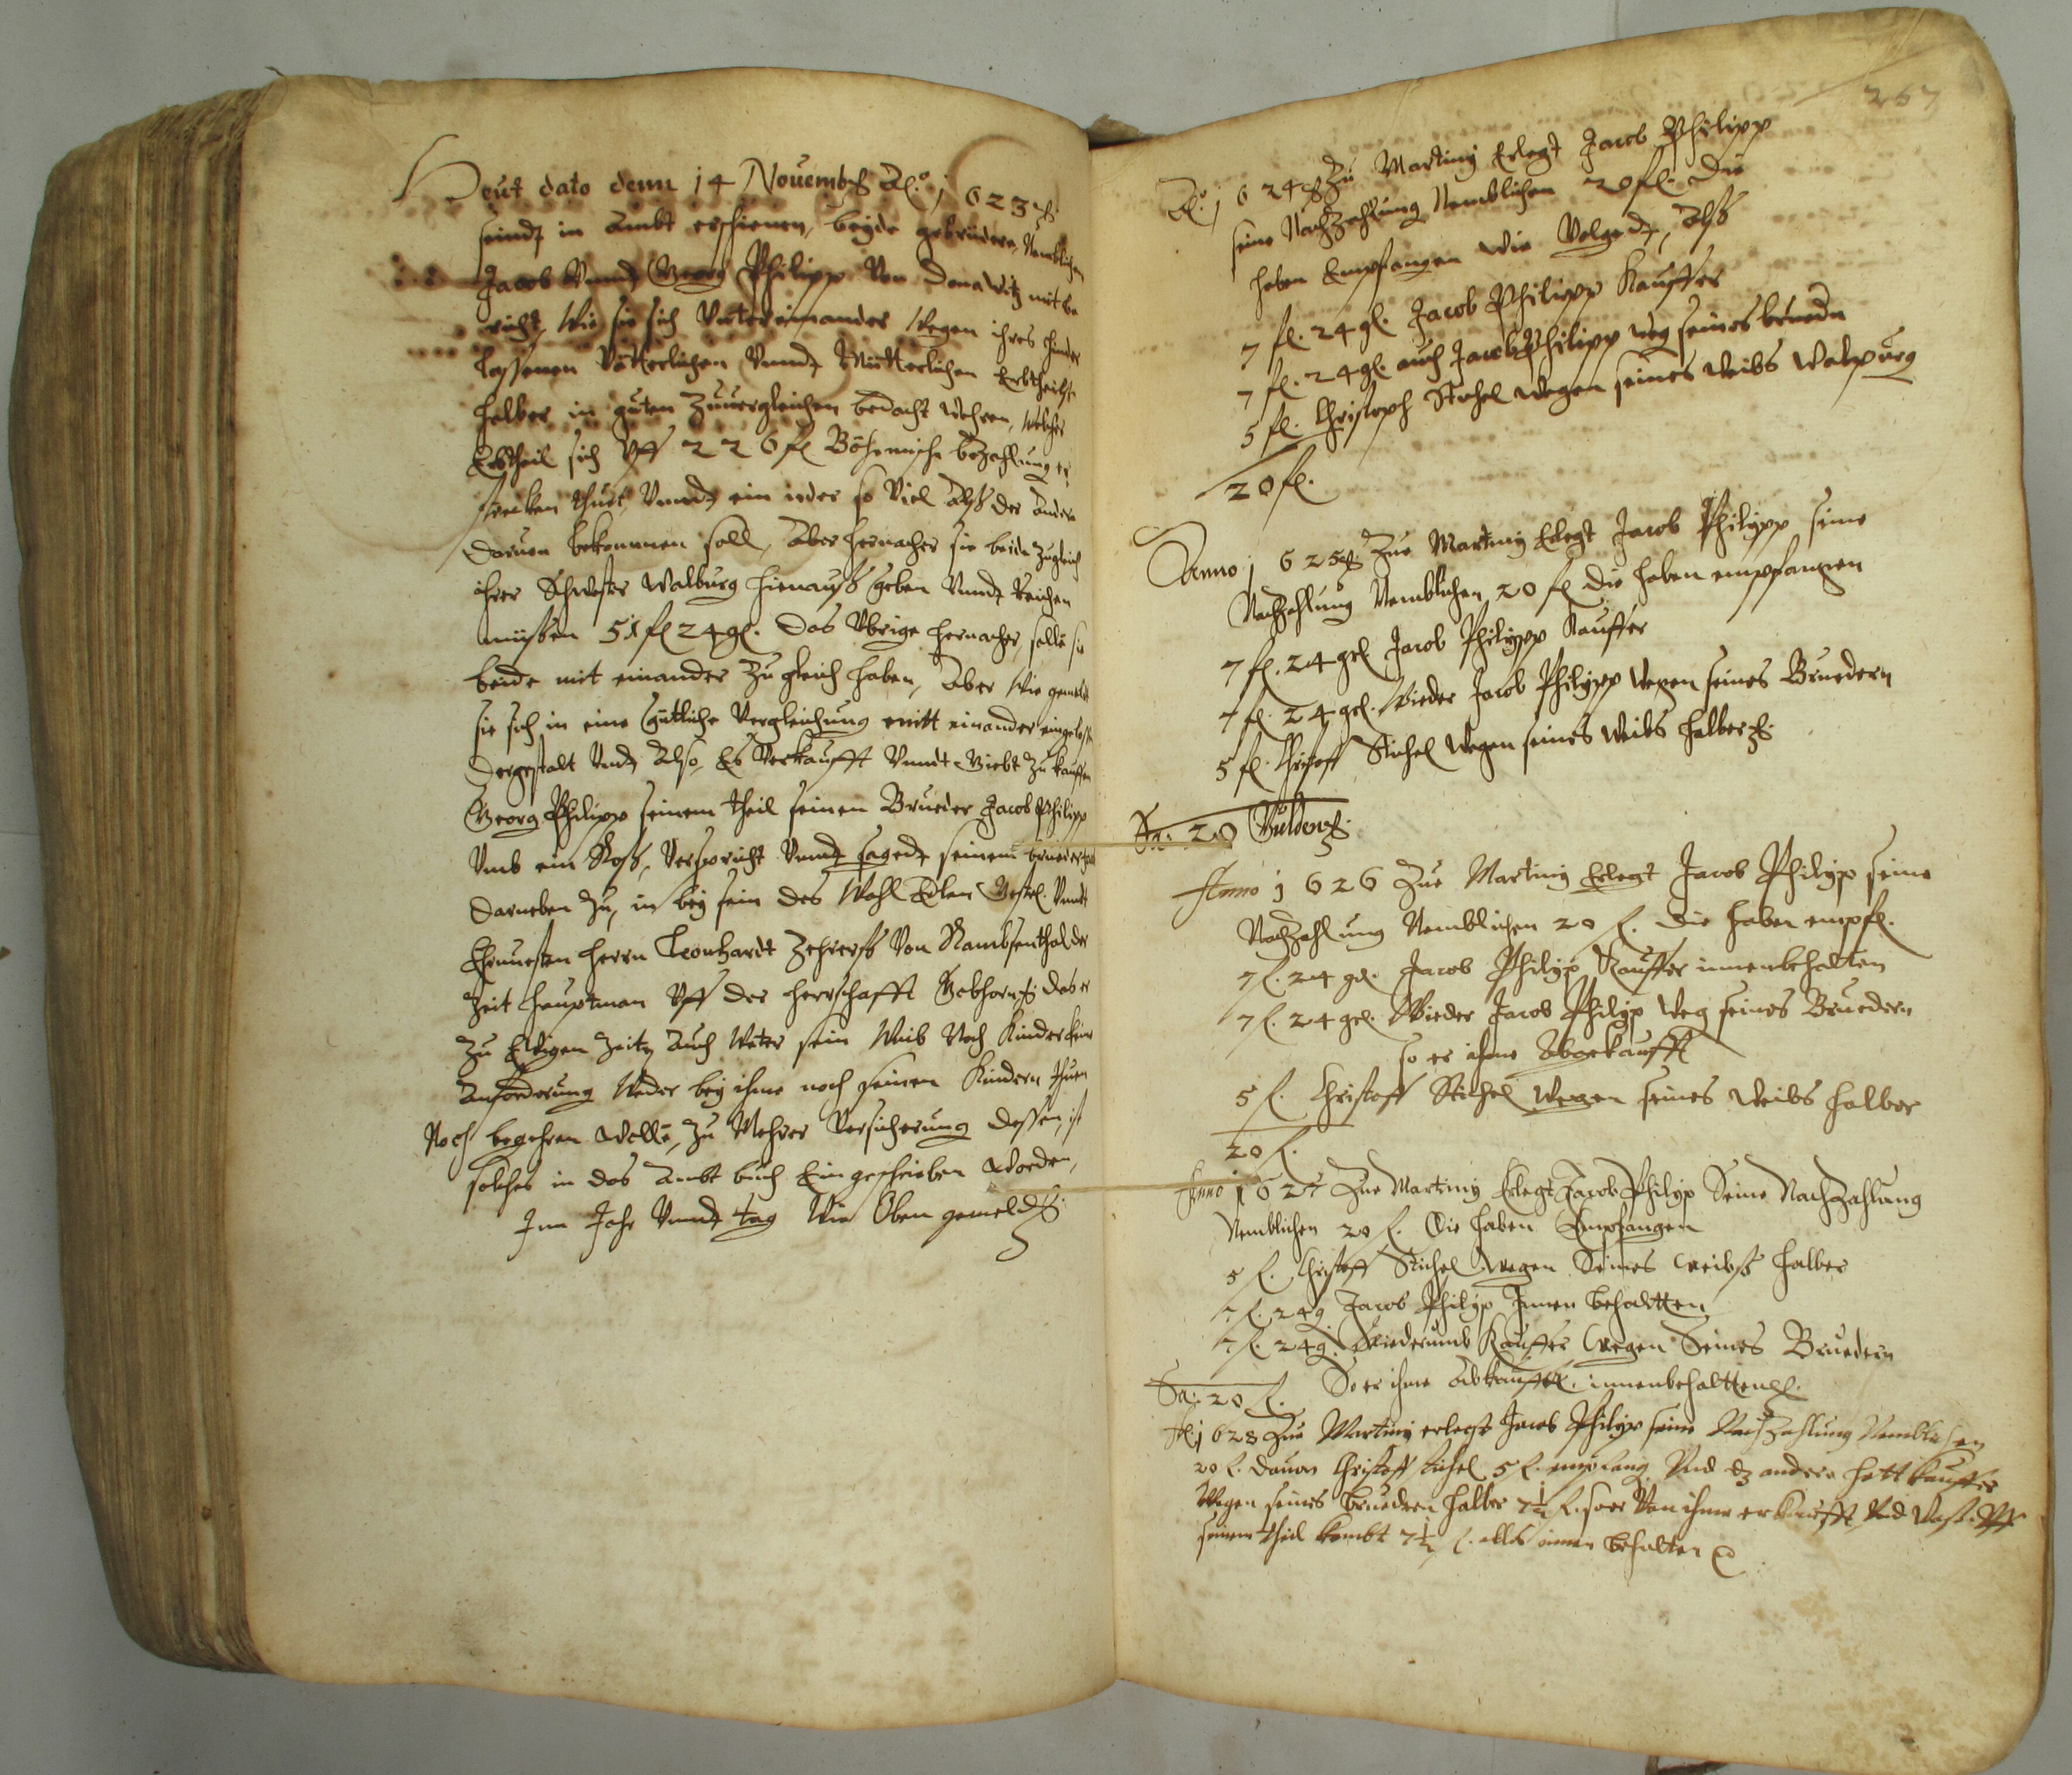 Heut dato denn 14 Novembr Ao. 1623
seindt in Ambt erschienen, beyde gebrüdere, Nemblichen
Jacob Vnndt Georg Philipp Von Donawitz mit be
richt, Wie sie sich Vnter einander Wegen ihres hinder
lassenen Vätterlichen Vnndt Mütterlichen Erbtheilß
halber in guten Zuuergleichen bedacht wehren, Welches
Erbtheil sich Vff 226 fl Böhemische bezahlung er
strecken thuet, Vnndt ein ieder so Viel Alß der Ander
daruon bekommen soll, Aber hernacher sie beide Zugleich
ihrer Schwester Walburg hienauß geben Vnndt Reichen
müssen 51 fl 24 gl. Das Vbrige hernacher, solle sie
beide mit einander Zu gleich haben, Aber Wie gemelt
sie sich in eine gütliche Vergleichung mitt einander eingelassen
dergestalt Vndt Also, Es Verkaufft Vnndt Giebt Zu kauffen
Georg Philipp seinem theil seinen Brueder Jacob Philipp
Vmb ein Roß, Verspricht Vnndt saget seinem bruedern
darneben Zu, in bey sein des Wohl Edlen Gestr. Vnndt
Ehrnuesten Herrn Leonhardt Zehrerß Von Rambsenthal der
Zeit Hauptman Vff der Herrschafft Gebhorn, das er
Zu Ewigen Zeiten Auch Weder sein Weib Noch Kinder keine
Anforderung Weder bey ihme noch seinen Kindern thuen
Noch begehren Wolle, Zu Mehrer Versicherung dessen, ist
solches in das Ambt buch Ein geschrieben Worden,
Im Jahr Vnndt tag Wie Oben gemeldt
267
Ao. 1624 Zu Martiny Erlegt Jacob Philipp
seine Nachzahlung Nemblichen 20 fl. Die
haben Empfangen Wie Volgedt, Alß
7 fl. 24 gl. Jacob Philipp Kauffer
7 fl. 24 gl. auch Jacob Philipp weg seines bruedn
5 fl. Christoph Stichel wegen seines Weibs Walpurg
20 fl.
Anno 1625 Zue Martiny Erlegt Jacob Philipp seine
Nachzahlung Nemblichen 20 fl die haben empfangen
7 fl. 24 gl Jacob Philipp Kauffer
7 fl. 24 gl. Wieder Jacob Philipp Wegen seines Bruedern
5 fl. Christoff Stichel Wegen seines Weibs halber
Sa: 20 Gulden
Anno 1626 Zue Martiny Erlegt Jacob Philyp seine
Nachzahlung Nemblichen 20 f. die haben empf.
7 f. 24 gl. Jacob Philyp Kauffer innenbehaltten
7 f. 24 gl. Wieder Jacob Philyp Weg seines Bruedern
so er ihme Abgekaufft
5 f. Christoff Stichel Wegen seines Weibs halber
20 f.
Anno 1627 Zue Martiny Erlegt Jacob Philyp Seine Nachzahlung
Nemblichen 20 f. Die haben Empfangen
5 f. Christoff Stichel Wegen Seines Weibß halber
7 f. 24 g Jacob Philyp Innen behaltten
7 f. 24 g. Wiederumb Kauffer Wegen Seines Bruedern
So er ihme Abkaufft. innenbehaltten
Sa: 20 f.
Ao 1628 Zue Martiny erlegt Jacob Philyp seine Nachzahlung Nemblichen
20 f. dauon Christoff stichel 5 f. empfang Vnd dz andere hatt kauffer
Wegen seines bruedern halber 7½ f. so er Von ihme erkaufft Vnd Waß Vff
seinem theil kombt 7½ f. alles innen behalten